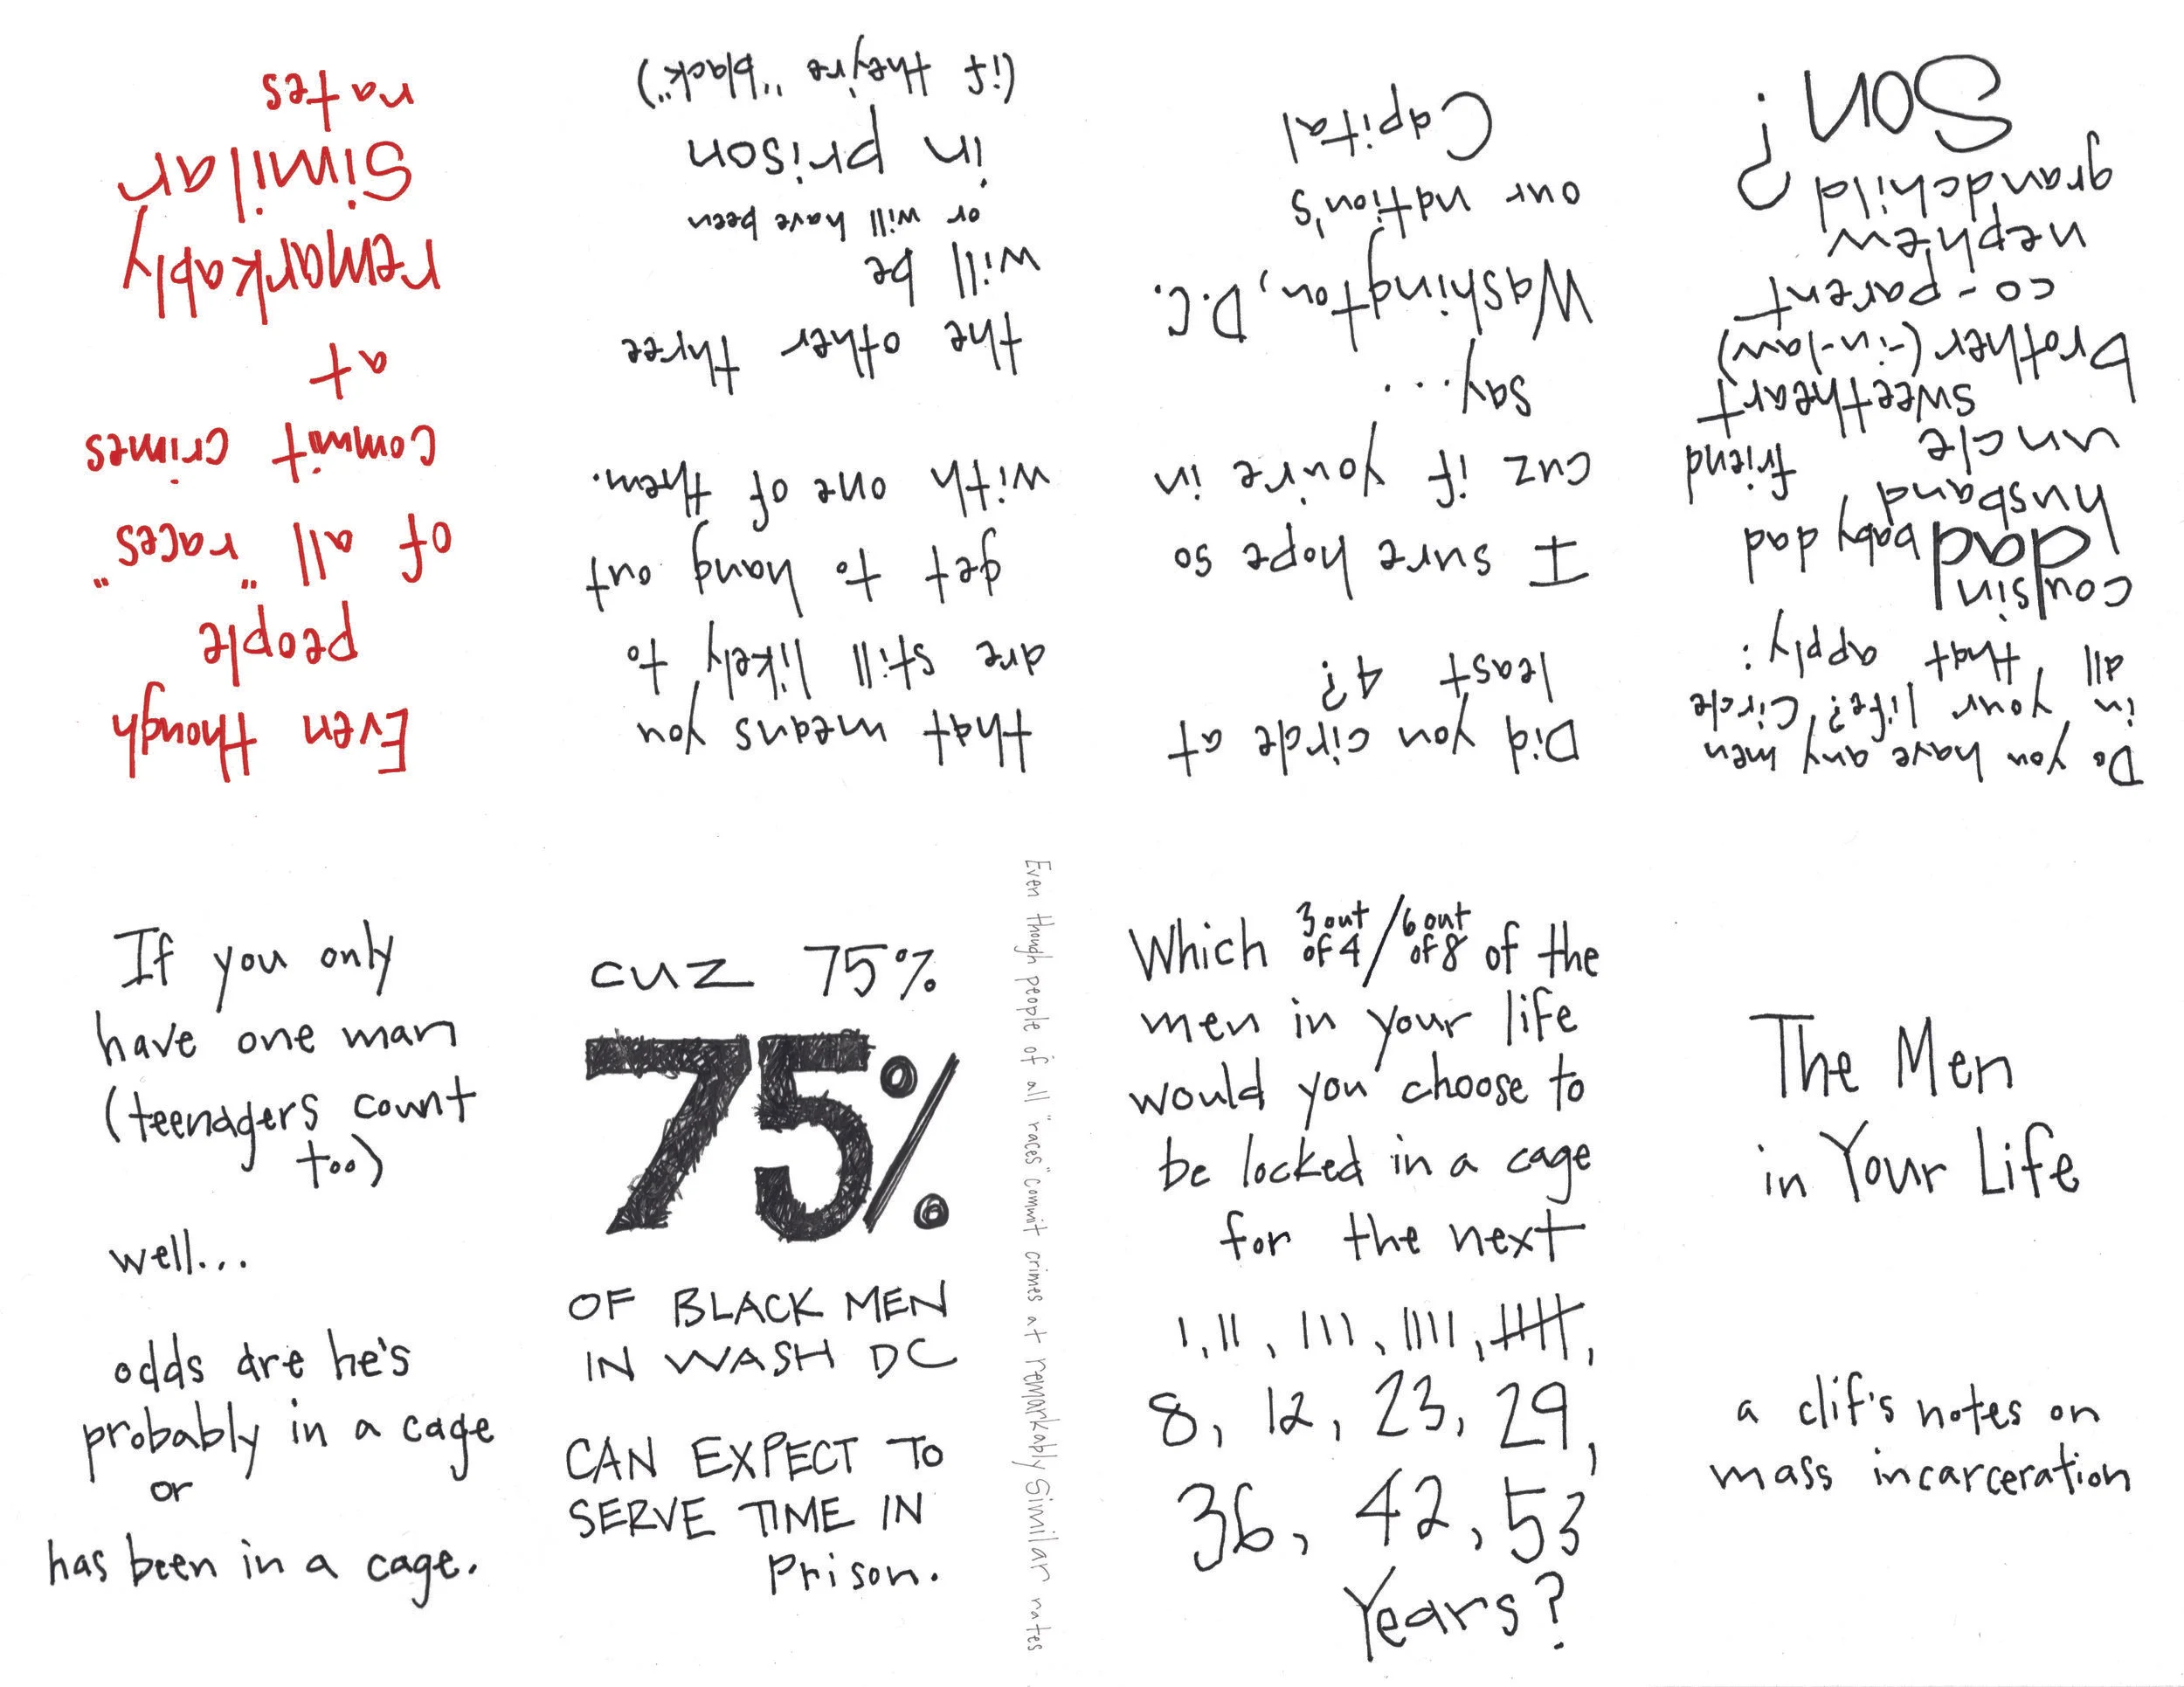 The Men
in Your Life
a clif's notes on
mass incarceration
Do you have any men
in your life? Circle
all that apply:
cousin
dad baby dad
husband
uncle friend
sweetheart
brother (-in-law)
co-parent
nephew
grandchild
Son?
Did you circle at
least 4?
I sure hope so
cuz if you're in
say...
Washington, D.C.
our nation's
Capital
that means you
are still likely to
get to hang out
with one of them.
the other three
will be
or will have been
in prison
(if they're "black")
Even though
people
of all "races"
commit crimes
at
remarkably
Similar
rates
If you only
have one man
(teenagers count
too)
well...
odds are he's
probably in a cage
or
has been in a cage.
cuz 75%
75%
OF BLACK MEN
IN WASH DC
CAN EXPECT TO
SERVE TIME IN
Prison.
Even though people of all "races" commit crimes at remarkably Similar rates
Which 3 out of 4 / 6 out of 8 of the
men in your life
would you choose to
be locked in a cage
for the next
I, II, III, IIII, IIIII,
8, 12, 23, 29,
36, 42, 53
Years?